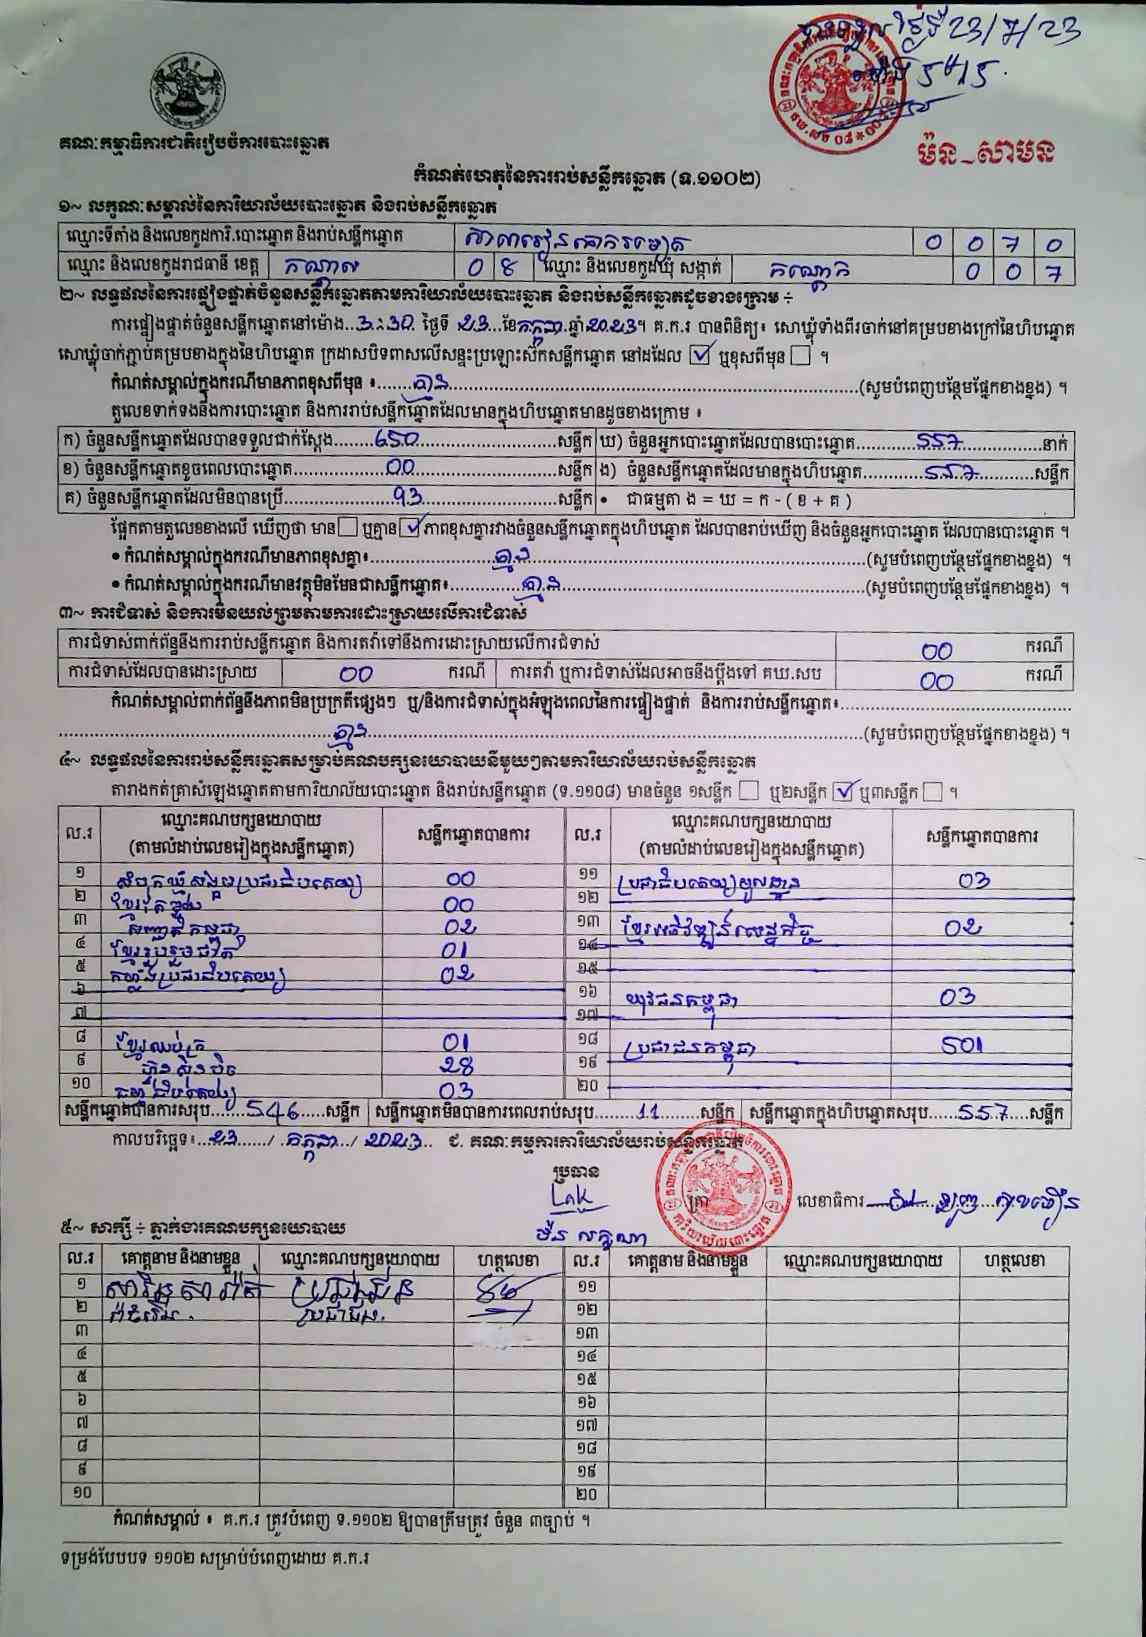 បានទទួល ថ្ងៃទី 23/7/23
ម៉ន សាមន
គណៈកម្មាធិការជាតិរៀបចំការបោះឆ្នោត
កំណត់ហេតុនៃការរាប់សន្លឹកឆ្នោត (ទ.១១០២)
១~ លក្ខណៈសម្គាល់នៃការិយាល័យបោះឆ្នោត និងរាប់សន្លឹកឆ្នោត
ឈ្មោះទីតាំង និងលេខកូដការិ.បោះឆ្នោត និងរាប់សន្លឹកឆ្នោត 0 0 7 0
ឈ្មោះ និងលេខកូដរាជធានី ខេត្ត កណ្តាល 0 8 ឈ្មោះ និងលេខកូដឃុំ សង្កាត់ 0 0 7
២~ លទ្ធផលនៃការផ្ទៀងផ្ទាត់ចំនួនសន្លឹកឆ្នោតតាមការិយាល័យបោះឆ្នោត និងរាប់សន្លឹកឆ្នោតដូចខាងក្រោម ÷
ការផ្ទៀងផ្ទាត់ចំនួនសន្លឹកឆ្នោតនៅម៉ោង...3:30 ថ្ងៃទី 23 ខែកក្កដា ឆ្នាំ2023។ គ.ក.រ បានពិនិត្យ៖ សោឃ្លុំទាំងពីរចាក់នៅគម្របខាងក្រៅនៃហិបឆ្នោត
សោឃ្លុំចាក់ភ្ជាប់គម្របខាងក្នុងនៃហិបឆ្នោត ក្រដាសបិទពាសលើសន្ទះប្រឡោះស៊កសន្លឹកឆ្នោត នៅដដែល ☑ ឬខុសពីមុន ☐ ។
កំណត់សម្គាល់ក្នុងករណីមានភាពខុសពីមុន ៖.......គ្មាន.......(សូមបំពេញបន្ថែមផ្នែកខាងខ្នង) ។
តួលេខទាក់ទងនឹងការបោះឆ្នោត និងការរាប់សន្លឹកឆ្នោតដែលមានក្នុងហិបឆ្នោតមានដូចខាងក្រោម ៖
ក) ចំនួនសន្លឹកឆ្នោតដែលបានទទួលជាក់ស្តែង........650........សន្លឹក ឃ) ចំនួនអ្នកបោះឆ្នោតដែលបានបោះឆ្នោត........557........នាក់
ខ) ចំនួនសន្លឹកឆ្នោតខូចពេលបោះឆ្នោត........00........សន្លឹក ង) ចំនួនសន្លឹកឆ្នោតដែលមានក្នុងហិបឆ្នោត........557........សន្លឹក
គ) ចំនួនសន្លឹកឆ្នោតដែលមិនបានប្រើ........93........សន្លឹក • ជាធម្មតា ង = ឃ = ក - ( ខ + គ )
ផ្អែកតាមតួលេខខាងលើ ឃើញថា មាន ☐ ឬគ្មាន ☑ ភាពខុសគ្នារវាងចំនួនសន្លឹកឆ្នោតក្នុងហិបឆ្នោត ដែលបានរាប់ឃើញ និងចំនួនអ្នកបោះឆ្នោត ដែលបានបោះឆ្នោត ។
• កំណត់សម្គាល់ក្នុងករណីមានភាពខុសគ្នា៖........គ្មាន........(សូមបំពេញបន្ថែមផ្នែកខាងខ្នង) ។
• កំណត់សម្គាល់ក្នុងករណីមានវត្ថុមិនមែនជាសន្លឹកឆ្នោត៖........គ្មាន........(សូមបំពេញបន្ថែមផ្នែកខាងខ្នង) ។
៣~ ការជំទាស់ និងការមិនយល់ព្រមតាមការដោះស្រាយលើការជំទាស់
ការជំទាស់ពាក់ព័ន្ធនឹងការរាប់សន្លឹកឆ្នោត និងការតវ៉ាទៅនឹងការដោះស្រាយលើការជំទាស់ 00 ករណី
ការជំទាស់ដែលបានដោះស្រាយ 00 ករណី ការតវ៉ា ឬការជំទាស់ដែលអាចនឹងប្តឹងទៅ គឃ.សប 00 ករណី
កំណត់សម្គាល់ពាក់ព័ន្ធនឹងភាពមិនប្រក្រតីផ្សេងៗ ឬ/និងការជំទាស់ក្នុងអំឡុងពេលនៃការផ្ទៀងផ្ទាត់ និងការរាប់សន្លឹកឆ្នោត៖........
........គ្មាន........(សូមបំពេញបន្ថែមផ្នែកខាងខ្នង) ។
៤~ លទ្ធផលនៃការរាប់សន្លឹកឆ្នោតសម្រាប់គណបក្សនយោបាយនីមួយៗតាមការិយាល័យរាប់សន្លឹកឆ្នោត
តារាងកត់ត្រាសំឡេងឆ្នោតតាមការិយាល័យបោះឆ្នោត និងរាប់សន្លឹកឆ្នោត (ទ.១១០៨) មានចំនួន ១សន្លឹក ☐ ឬ២សន្លឹក ☑ ឬ៣សន្លឹក ☐ ។
ល.រ ឈ្មោះគណបក្សនយោបាយ (តាមលំដាប់លេខរៀងក្នុងសន្លឹកឆ្នោត) សន្លឹកឆ្នោតបានការ ល.រ ឈ្មោះគណបក្សនយោបាយ (តាមលំដាប់លេខរៀងក្នុងសន្លឹកឆ្នោត) សន្លឹកឆ្នោតបានការ
១ សំបុកឃ្មុំសង្គមប្រជាធិបតេយ្យ 00 ១១ ប្រជាធិបតេយ្យមូលដ្ឋាន 03
២ ខ្មែរតែមួយ 00 ១២
៣ សញ្ជាតិកម្ពុជា 02 ១៣ ខ្មែរអភិវឌ្ឍន៍សេដ្ឋកិច្ច 02
៤ ខ្មែររួបរួមជាតិ 01 ១៤
៥ កម្លាំងប្រជាធិបតេយ្យ 02 ១៥
៦ ១៦ យុវជនកម្ពុជា 03
៧ ១៧
៨ ខ្មែរឈប់ក្រ 01 ១៨ ប្រជាជនកម្ពុជា 501
៩ ហ្វ៊ុនស៊ិនប៉ិច 28 ១៩
១០ 03 ២០
សន្លឹកឆ្នោតបានការសរុប......546.....សន្លឹក សន្លឹកឆ្នោតមិនបានការពេលរាប់សរុប........11........សន្លឹក សន្លឹកឆ្នោតក្នុងហិបឆ្នោតសរុប......557....សន្លឹក
កាលបរិច្ឆេទ៖..23....../.កក្កដា../.2023.. ជ. គណៈកម្មការការិយាល័យរាប់សន្លឹកឆ្នោត
ប្រធាន
ត្រា លេខាធិការ
៥~ សាក្សី ÷ ភ្នាក់ងារគណបក្សនយោបាយ
ល.រ គោត្តនាម និងនាមខ្លួន ឈ្មោះគណបក្សនយោបាយ ហត្ថលេខា ល.រ គោត្តនាម និងនាមខ្លួន ឈ្មោះគណបក្សនយោបាយ ហត្ថលេខា
១ ប្រជាជន ១១
២ ប្រជាជន ១២
៣ ១៣
៤ ១៤
៥ ១៥
៦ ១៦
៧ ១៧
៨ ១៨
៩ ១៩
១០ ២០
កំណត់សម្គាល់ ៖ គ.ក.រ ត្រូវបំពេញ ទ.១១០២ ឱ្យបានត្រឹមត្រូវ ចំនួន ៣ច្បាប់ ។
ទម្រង់បែបបទ ១១០២ សម្រាប់បំពេញដោយ គ.ក.រ